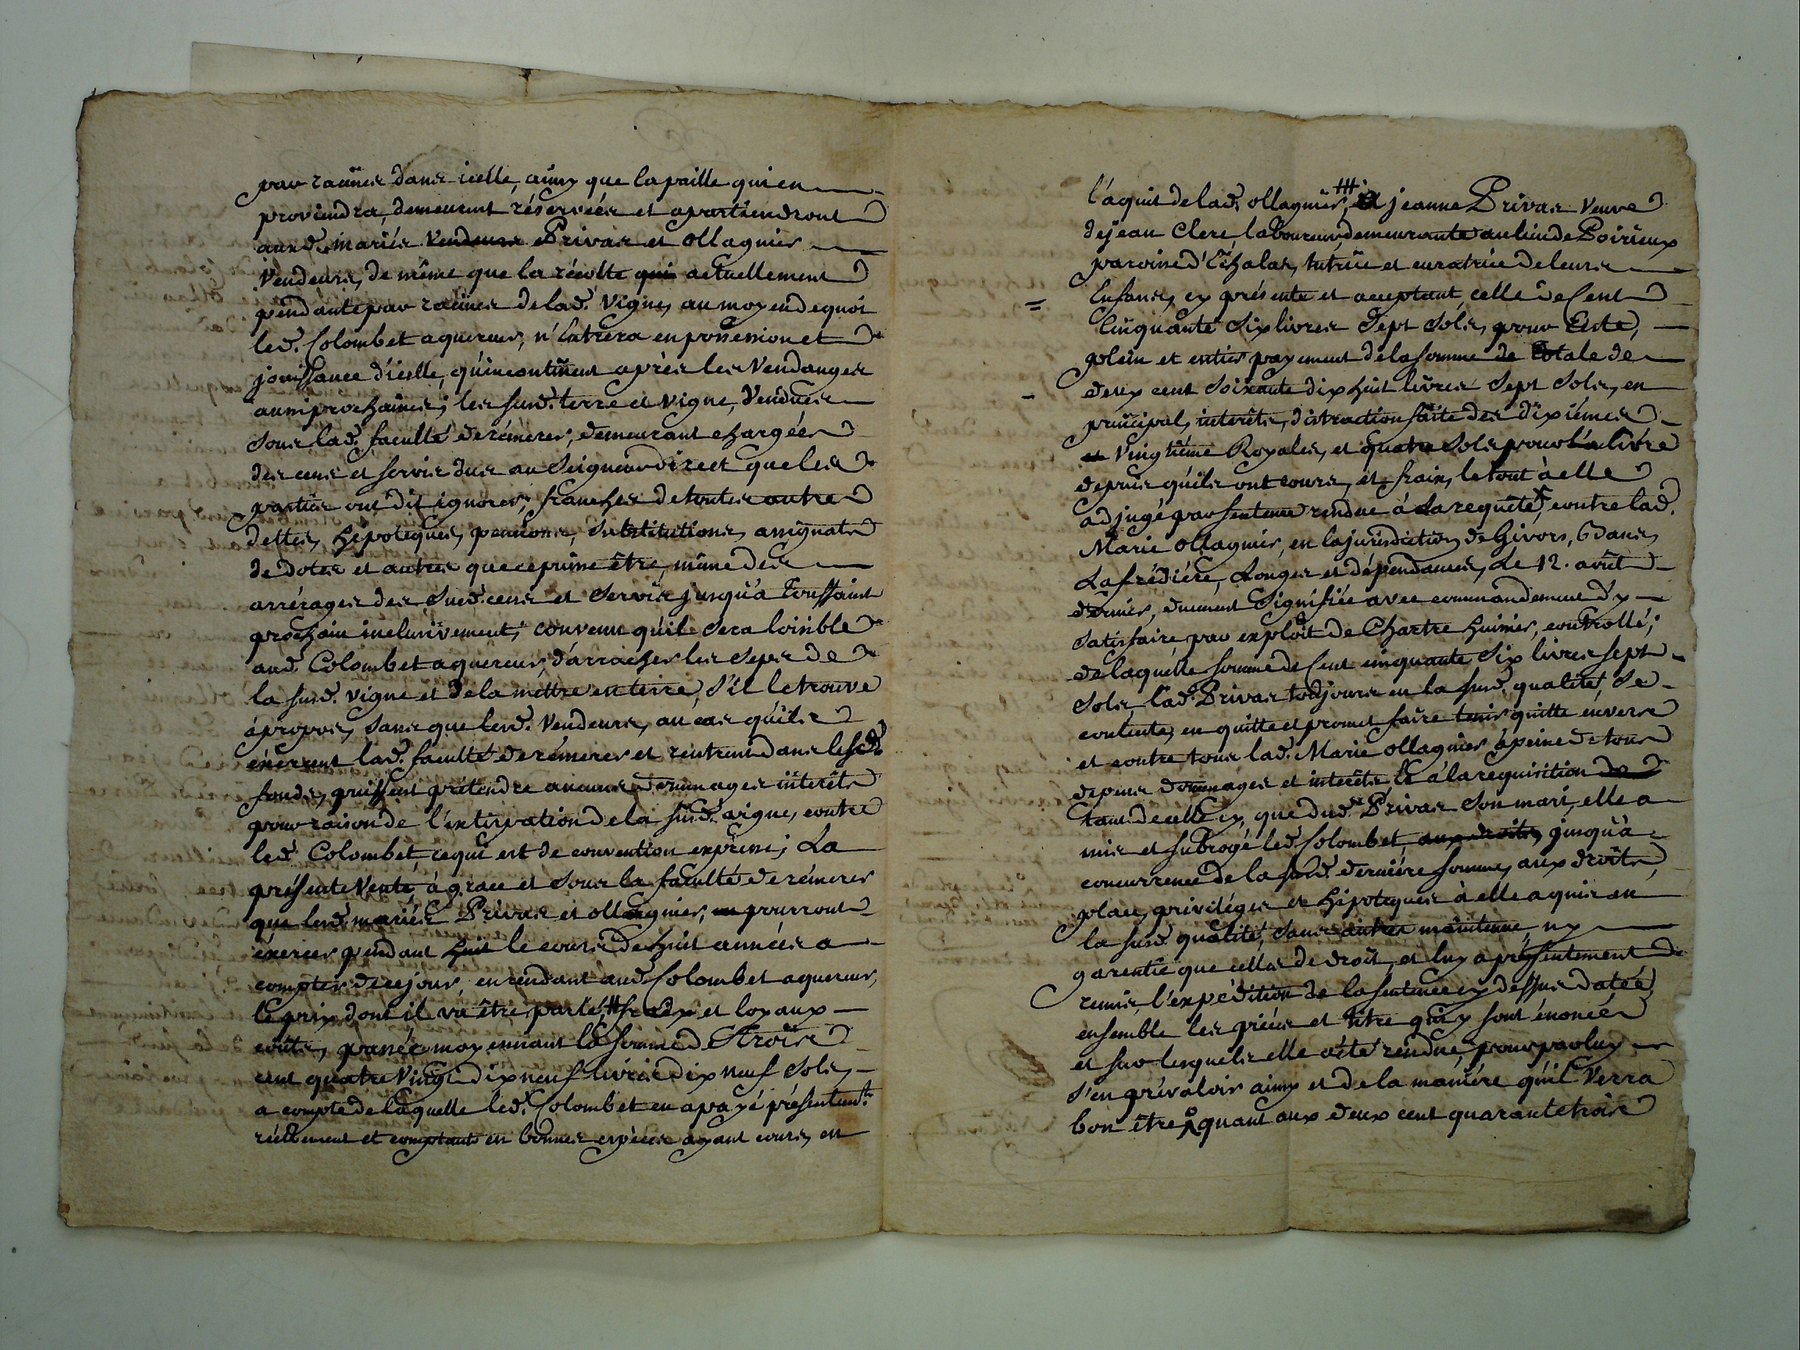 par racines dans icelle, ainsy que la paille qui en
proviendra, demeurent réservées et apartiendront
aux d. mariés Vendeurs Privas et ollagnier
Vendeurs, de même que la récolte qui actuellement
pendante par racines de lad. Vigne, au moyen de quoi
led. Colombet aquereur, n'Entrera en possession et
jouissance d'icelle, qu'incontinent après les Vendanges
aussi prochaines; les susd. terre et vigne, Vendues
sous lad. faculté de rémérer, demeurant chargées
des cens et servis dus au Seigneur direct que les
parties ont dit ignorer, franches de toutes autres
dettes, hipoteques, pensions, substitutions, assignats
de dotes et autres que ce puisse être, même des
arrérages des susd. cens et servis jusqu'à Toussaint
prochain inclusivement; convenu qu'il sera loisible
aud. Colombet aquereur, d'arracher les seps de
la susd. vigne et de la mettre en terre, s'il le trouve
à propos, sans que lesd. Vendeurs, au cas qu'ils
exercent lad. faculté de rémérer et rentrent dans les sd.
fonds, puissent prétendre aucuns dommages intérêts
pour raison de l'extirpation de la susd. vigne, contre
led. Colombet, ce qui est de convention expresse; La
présente Vente, à grace et sous la faculté de rémérer
que lesd. mariés Privas et ollagnier, pourront
exercer pendant huit le cours de huit années a
compter de ce jour, en rendant aud. Colombet aquereur,
le prix dont il va être parlé, et loyaux
coûts, passée moyennant la somme de Trois
cent quatre Vingt dix neuf livres dix neuf sols,
a compte de laquelle led. Colombet en a payé présentemt.
réellement et comptant en bonnes espèces ayant cours, en
l'aquit de lad. ollagnier, a jeanne Privas Veuve
de jean Clerc, laboureur, demeurante au lieu de Poirieux
paroisse d'Echalas, tutrice et curatrice de leurs
Enfans, cy présente et acceptant, celle de Cent
Cinquante Six livres Sept Sols, pour Reste,
plein et entier payement de la somme de totale de
deux cent soixante dix huit livres Sept Sols, en
principal, interêts, distraction faite des dixièmes
et Vingtième Royales, et quatre Sols pour la livre
depuis qu'ils ont cours, et frais, le tout à elle
adjugé par sentence rendue à sa requête, contre lad.
Marie ollagnier, en la jurisdiction de Givors, Bans,
La frédière, Longes et dépendances, Le 12. août
dernier, duement Signifiée avec commandement d'y
satisfaire par exploit de Chartre huissier, controllé;
de laquelle somme de Cent cinquante Six livres sept
sols, lad. Privas toujours en la susd. qualité, se
contente, en quitte et promet faire tenir quitte envers
et contre tous lad. Marie ollagnier à peine de tous
depens dommages et interêts, Et à la requisition de
tant d'icelle cy, que dud. Privas son mari, elle a
mis et subrogé led. Colombet, aux droits, jusqu'à
concurrence de la susd. dernière somme, aux droits,
place, privilèges et hipoteques à elle aquis en
la susd. qualité, sans autres maintenue, ny
garentie que celles de droit, et luy a présentement
remis l'expédition de la sentence cy dessus datée,
ensemble les pièces et titre qui y sont énoncés
et sur lesquels elle a été rendue, pour par luy
s'en prévaloir ainsy et de la manière qu'il Verra
bon être, quant aux deux cent quarante trois